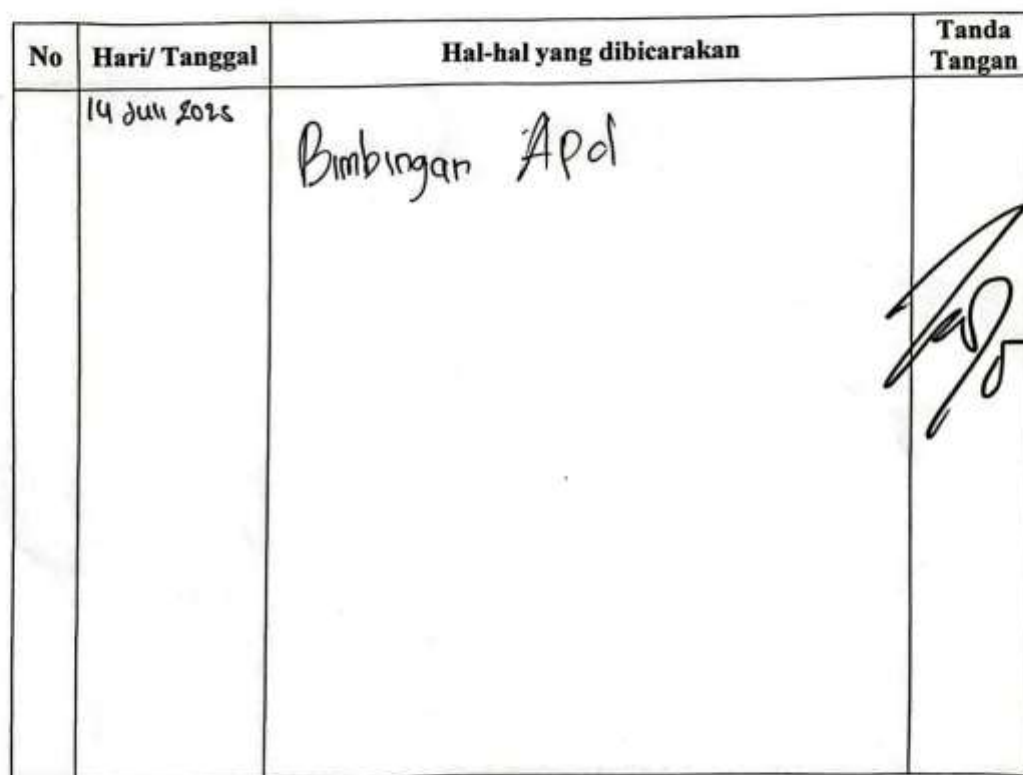 No Hari/ Tanggal Hal-hal yang dibicarakan Tanda
Tangan
14 Juli 2025
Bimbingan Apd